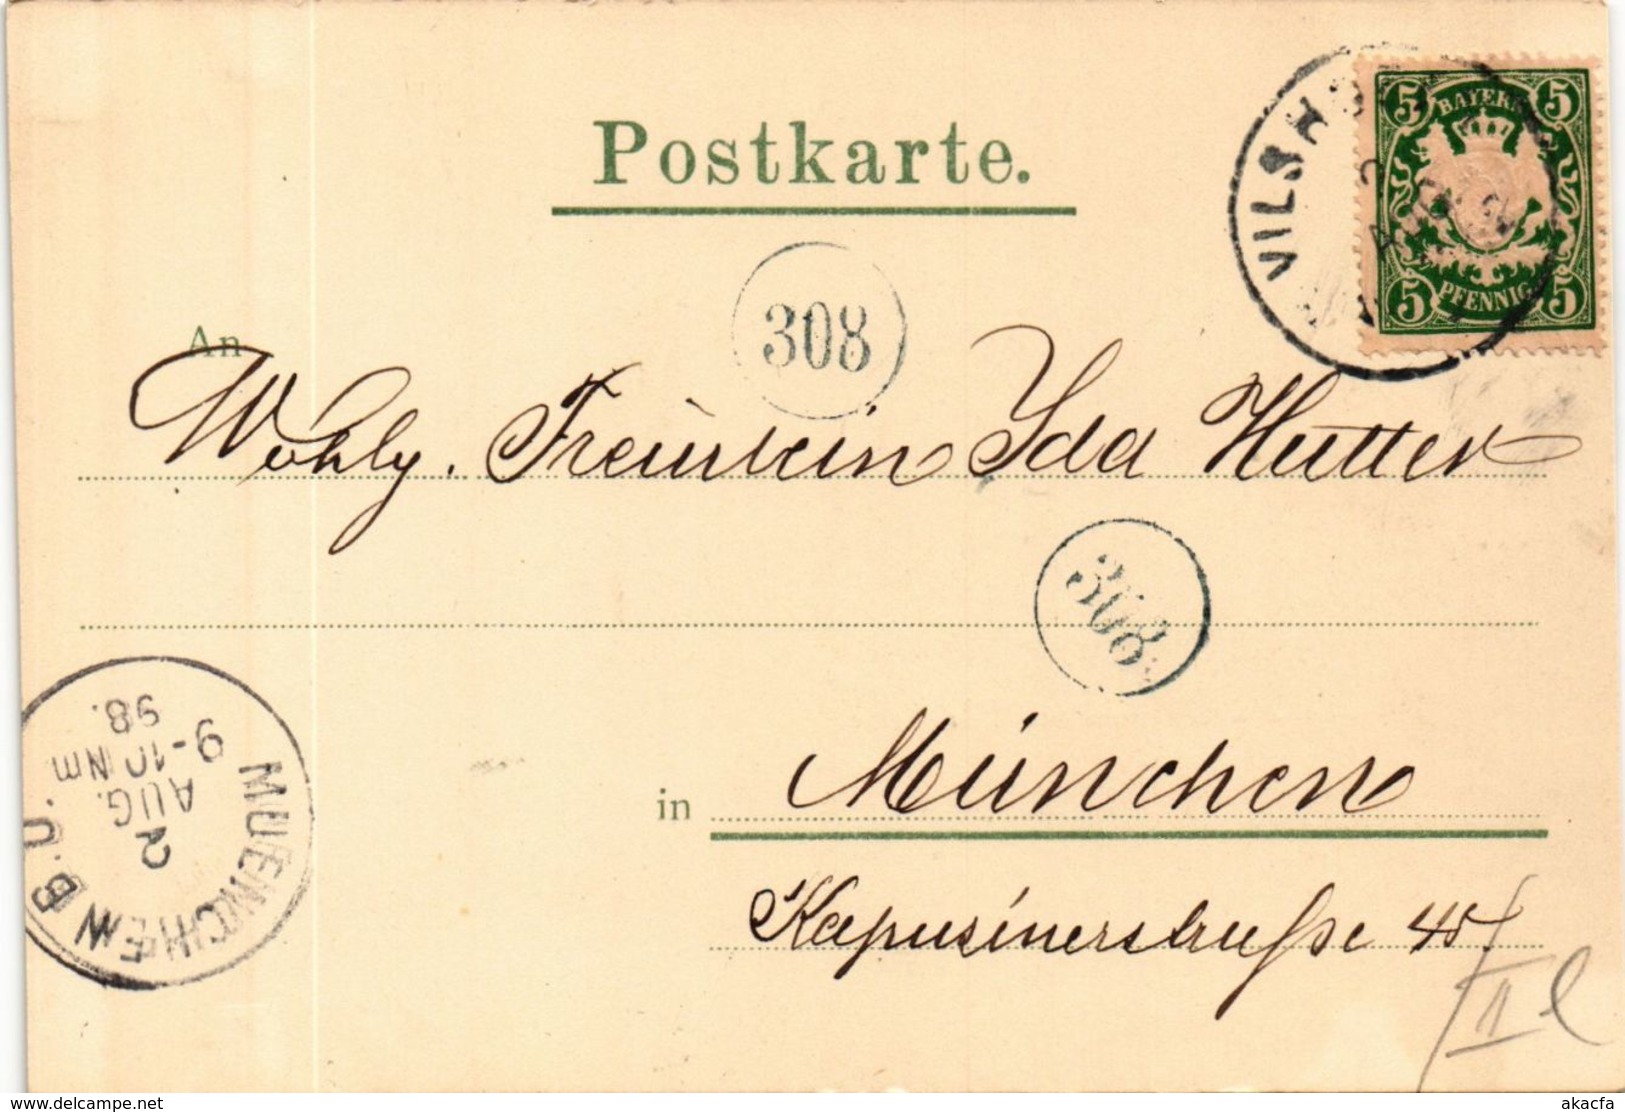 Postkarte.
5 BAYERN 5
5 PFENNIG 5
VILSH
308
An
Wohlg. Freiulein Ida Hutter
308
in München
Kapusinerstraße 45/
II l
MUENCHEN B.O.
2
AUG.
9-10 NM
98.
https://www.delcampe.net
akacfa